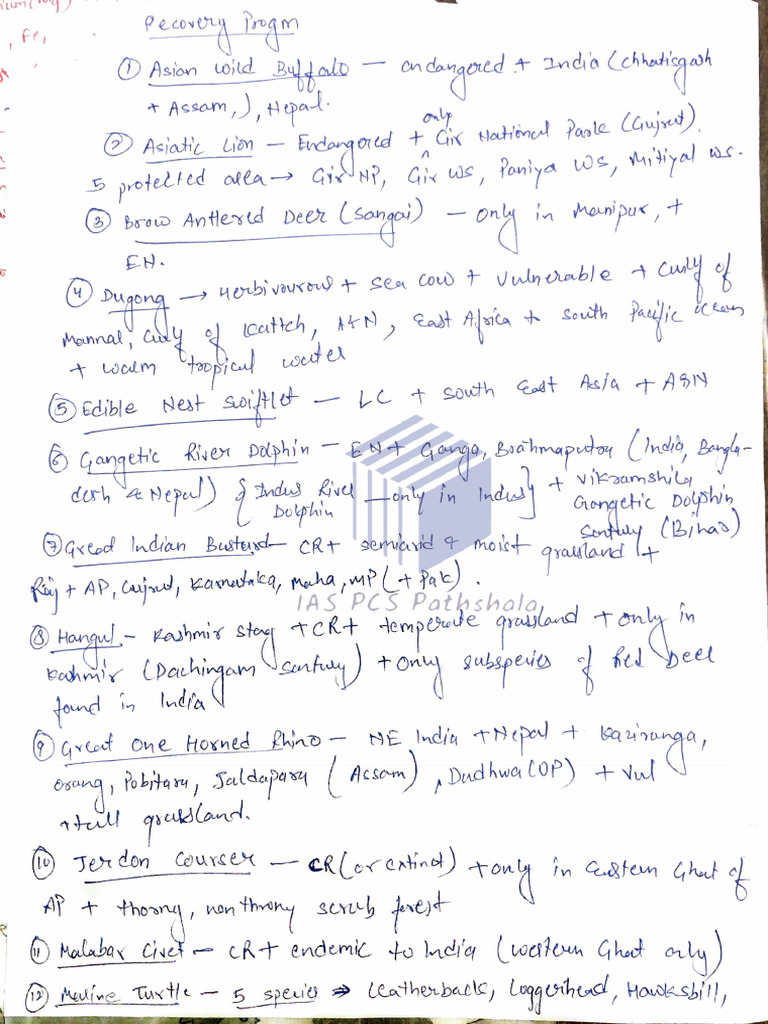 Recovery Progm
① Asian Wild Buffalo — endangered + India (chhatisgarh
+ Assam,), Nepal.
only
② Asiatic Lion — Endangered + Gir National Park (Gujrut).
5 protected area → Gir NP, Gir WS, Paniya WS, Mitiyal WS.
③ Brow Anttered Deer (Sangai) — only in Manipur, +
EN.
④ Dugong → Herbivourous + sea cow + vulnerable + Gulf of
Mannal, Gulf of Kuttch, A&N, East Africa + South Pacific Ocean
+ warm tropical water
⑤ Edible Nest Swiftlet — LC + South East Asia + A&N
⑥ Gangetic River Dolphin — EN + Ganga, Brahmaputra (India, Bangla-
desh & Nepal) { Indus River Dolphin — only in Indus } + Vikramshila
Gangetic Dolphin
Santury (Bihar)
⑦ Great Indian Bustard — CR + semiarid & moist grassland +
Raj + AP, Gujrut, Karnataka, Maha, MP (+ Pak).
IAS PCS Pathshala
⑧ Hangul — Kashmir Stag + CR + temperate grassland + only in
Kashmir (Dachingam Santury) + only subspecies of Red Deer
found in India
⑨ Great One Horned Rhino — NE India + Nepal + Kaziranga,
Orang, Pobitara, Jaldapara (Assam), Dudhwa (UP) + Vul
+ tall grassland.
⑩ Jerdon Courser — CR (or extinct) + only in Eastern Ghat of
AP + thorny, non throny scrub forest
⑪ Malabar Civet — CR + endemic to India (western Ghat only)
⑫ Marine Turtle — 5 species → Leatherback, Loggerhead, Hawksbill,